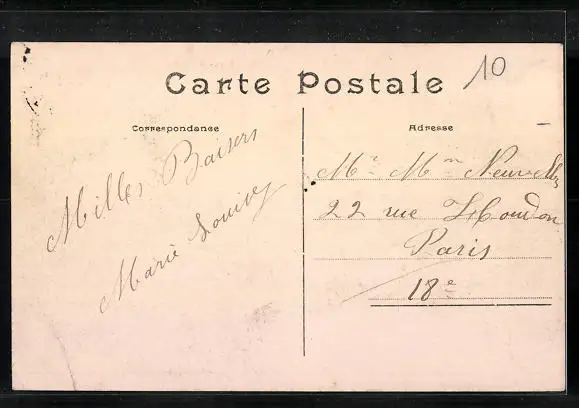 Carte Postale
10
Correspondance
Adresse
Milles Baisers
Marie Louise
Mr. Mme
22 rue Houdon
Paris
18e